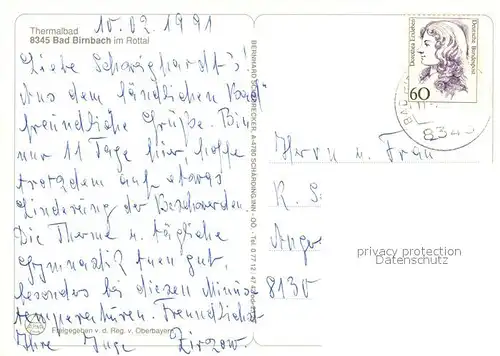 10.02.1991
Thermalbad
8345 Bad Birnbach im Rottal
Liebe Schweighardt's!
Aus dem ländlichen Bad
freundliche Grüße. Bin
nur 11 Tage hier, hoffe
trotzdem auf etwas
Linderung der Beschwerden.
Die Therme u. tägliche
Gymnastik tuen gut,
besonders bei diesen Minus
temperaturen. Freundlichst
Freigegeben v. d. Reg. v. Oberbayern
Ihre Inge Zirzow.
Dorothea Erxleben
Deutsche Bundespost
60
8345
Herrn u. Frau
K. S
8130
privacy protection
Datenschutz